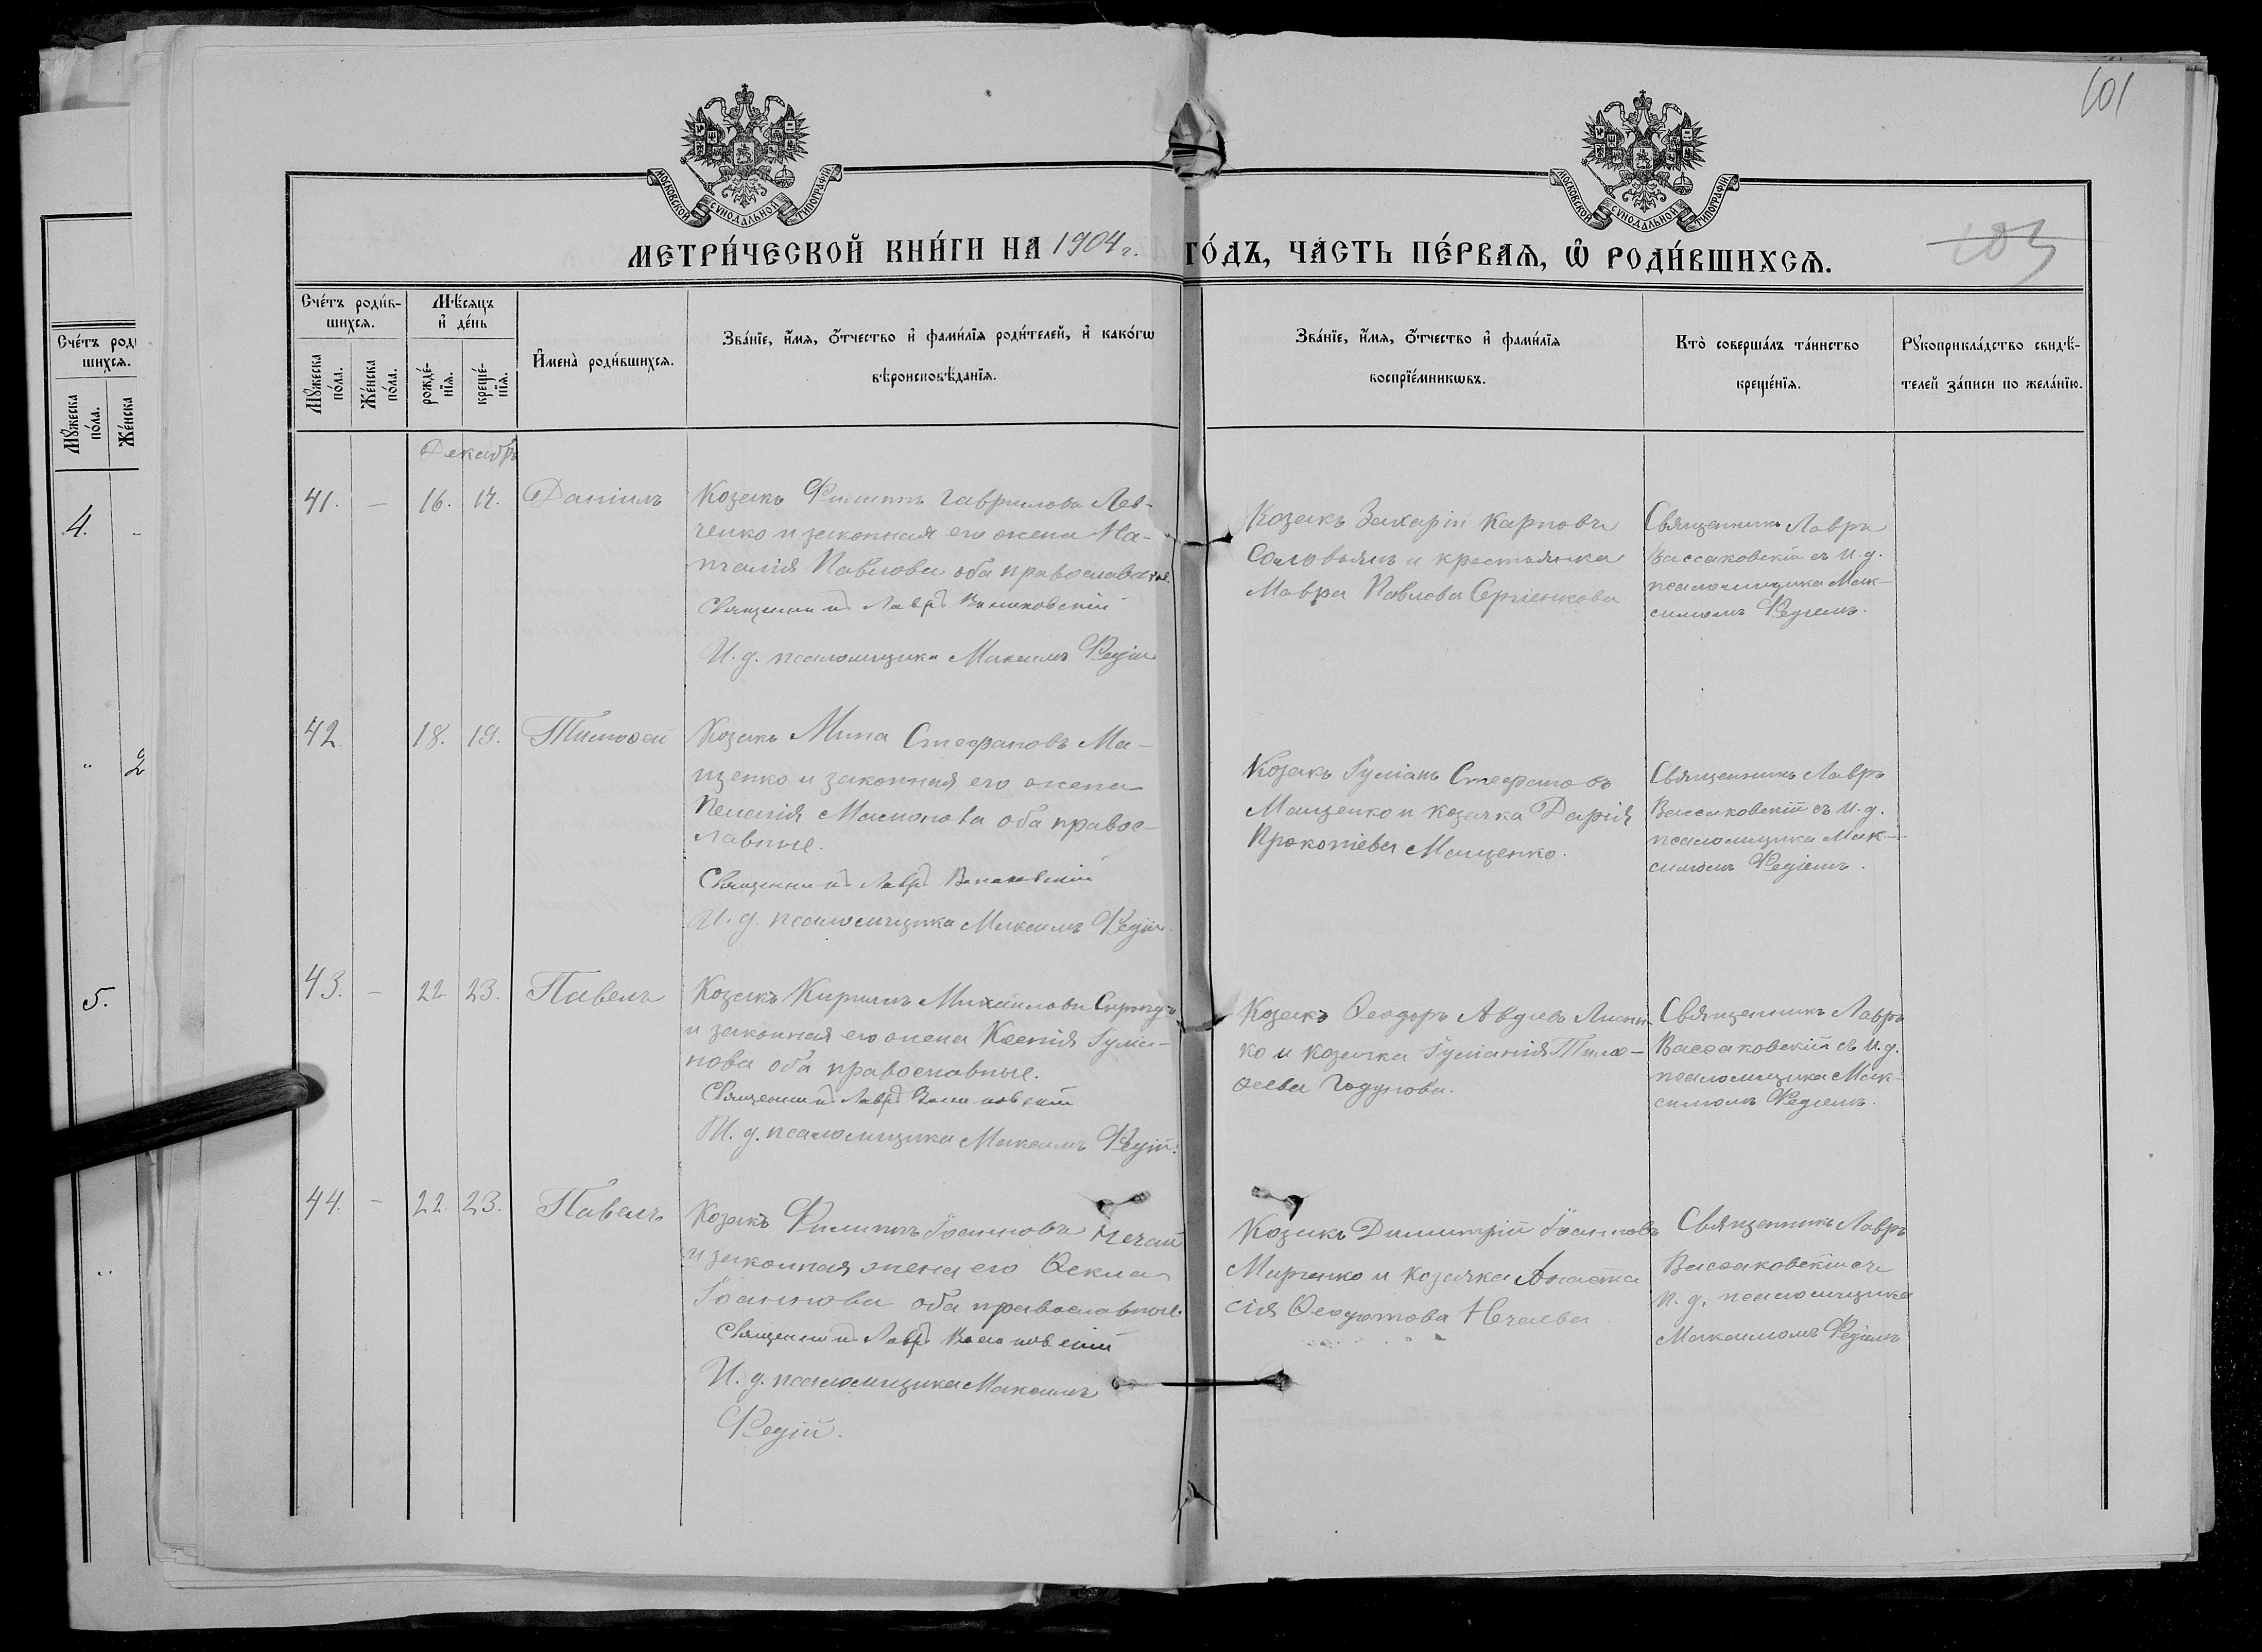 101
МОСКОВСКОЙ СѴНОДАЛЬНОЙ ТИПОГРАФІИ
МОСКОВСКОЙ СѴНОДАЛЬНОЙ ТИПОГРАФІИ
МЕТРИ́ЧЕСКОЙ КНИ́ГИ НА 1904 г. ГО́ДЪ, ЧА́СТЬ ПЕ́РВАЯ, Ѡ РОДИ́ВШИХСЯ.
103
Сче́тъ роди́в-
шихся.
Мꙋ́жеска по́ла.
Же́нска по́ла.
Мѣ́сяцъ
и҆ де́нь
рожде́-
нїѧ.
креще́-
нїѧ.
И҆мена̀ роди́вшихся.
Зва́нїе, и҆́мя, ѻ҆́тчество и҆ фами́лїя роди́телей, и҆ како́гѡ
вѣроисповѣ́данїя.
Зва́нїе, и҆́мя, ѻ҆́тчество и҆ фами́лїя
воспрїе́мникѡвъ.
Кто̀ соверша́лъ та́инство
креще́нїя.
Рꙋкоприкла́дство свидѣ́-
телей за́писи по жела́нїю.
Декабрь
41. – 16. 17. Даніилъ
Козакъ Филиппъ Гавриловъ Лев-
ченко и законная его жена На-
талія Павлова оба православные.
Священникъ Лавръ Вассаковскій
И. д. псаломщика Максимъ Федій
Козакъ Захарій Карповъ
Соловьянъ и крестьянка
Мавра Павлова Сергіенкова
Священникъ Лавръ
Вассаковскій съ И. д.
псаломщика Мак-
симомъ Федіемъ.
42 18. 19. Тимоѳей
Козакъ Мина Стефановъ Ма-
щенко и законная его жена
Пелагія Мамонова оба правос-
лавные.
Священникъ Лавръ Вассаковскій
И. д. псаломщика Максимъ Федій.
Козакъ Іуліанъ Стефановъ
Мащенко и козачка Дарія
Прокопіева Мащенко.
Священникъ Лавръ
Вассаковскій съ И. д.
псаломщика Мак-
симомъ Федіемъ.
43. – 22. 23. Павелъ
Козакъ Кириллъ Михайловъ
и законная его жена Ксенія Іулiа-
нова оба православные.
Священникъ Лавръ Вассаковскій
И. д. псаломщика Максимъ Федій.
Козакъ Ѳеодоръ Авдіевъ
ко и козачка Іуліанія Тимо-
ѳеева Годунова.
Священникъ Лавръ
Вассаковскій съ И. д.
псаломщика Мак-
симомъ Федіемъ.
44. – 22. 23. Павелъ
Козакъ Филиппъ Іоанновъ Нечай
и законная жена его Ѳекла
Іоаннова оба православные.
Священникъ Лавръ Вассаковскій
И. д. псаломщика Максимъ
Федій.
Козакъ Димитрій Іоанновъ
Мирненко и козачка Анаста
сія Ѳеодотова Нечаева
Священникъ Лавръ
Вассаковскій съ
И. д. псаломщика
Максимомъ Федіемъ
Сче́тъ род
шихся.
Мꙋ́жеска по́ла.
Же́нска
4.
2
5.